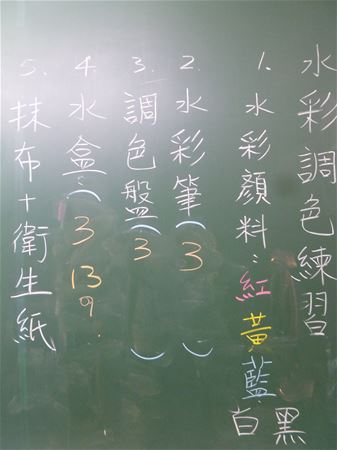 水彩調色練習
1. 水彩顏料：紅黃藍白黑
2. 水彩筆（3）
3. 調色盤（3）
4. 水盒：（3 13 9.
5. 抹布+衛生紙